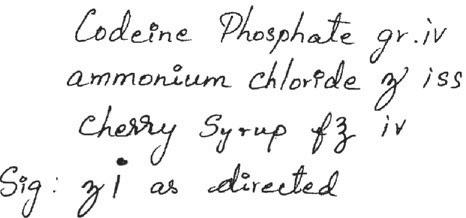 Codeine Phosphate gr.iv
ammonium chloride ʒ iss
Cherry Syrup f℥ iv
Sig: ʒ i as directed